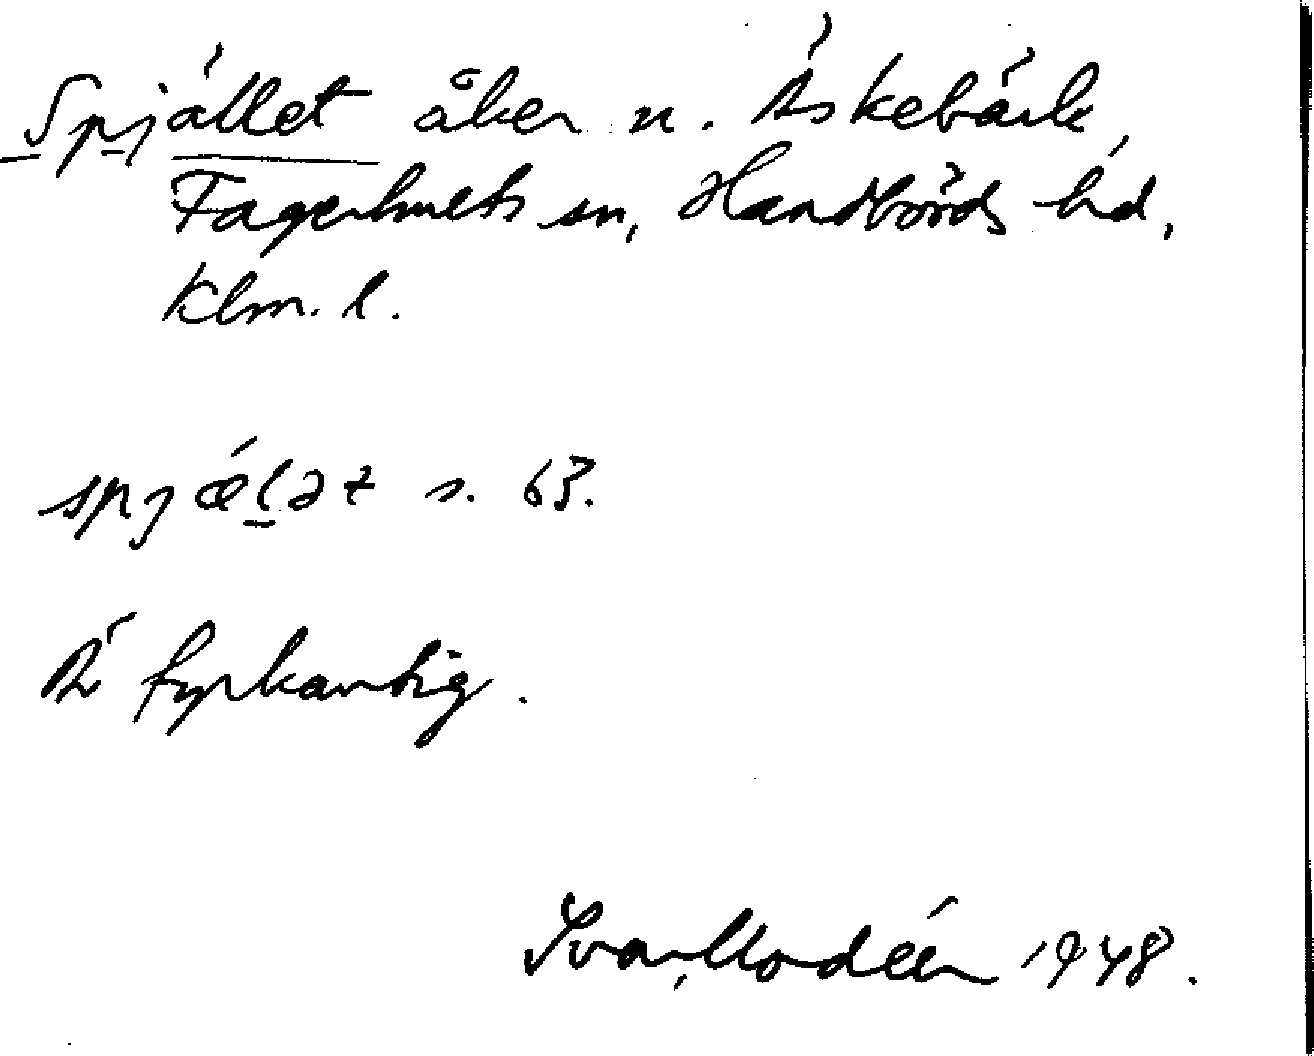 Spjället åker n. Äskebäck,
Fagerhults sn, Handbörds hd,
Klm. l.
spjǽlət s. 63.
Är fyrkantig.
Ivar Modéer 1948.